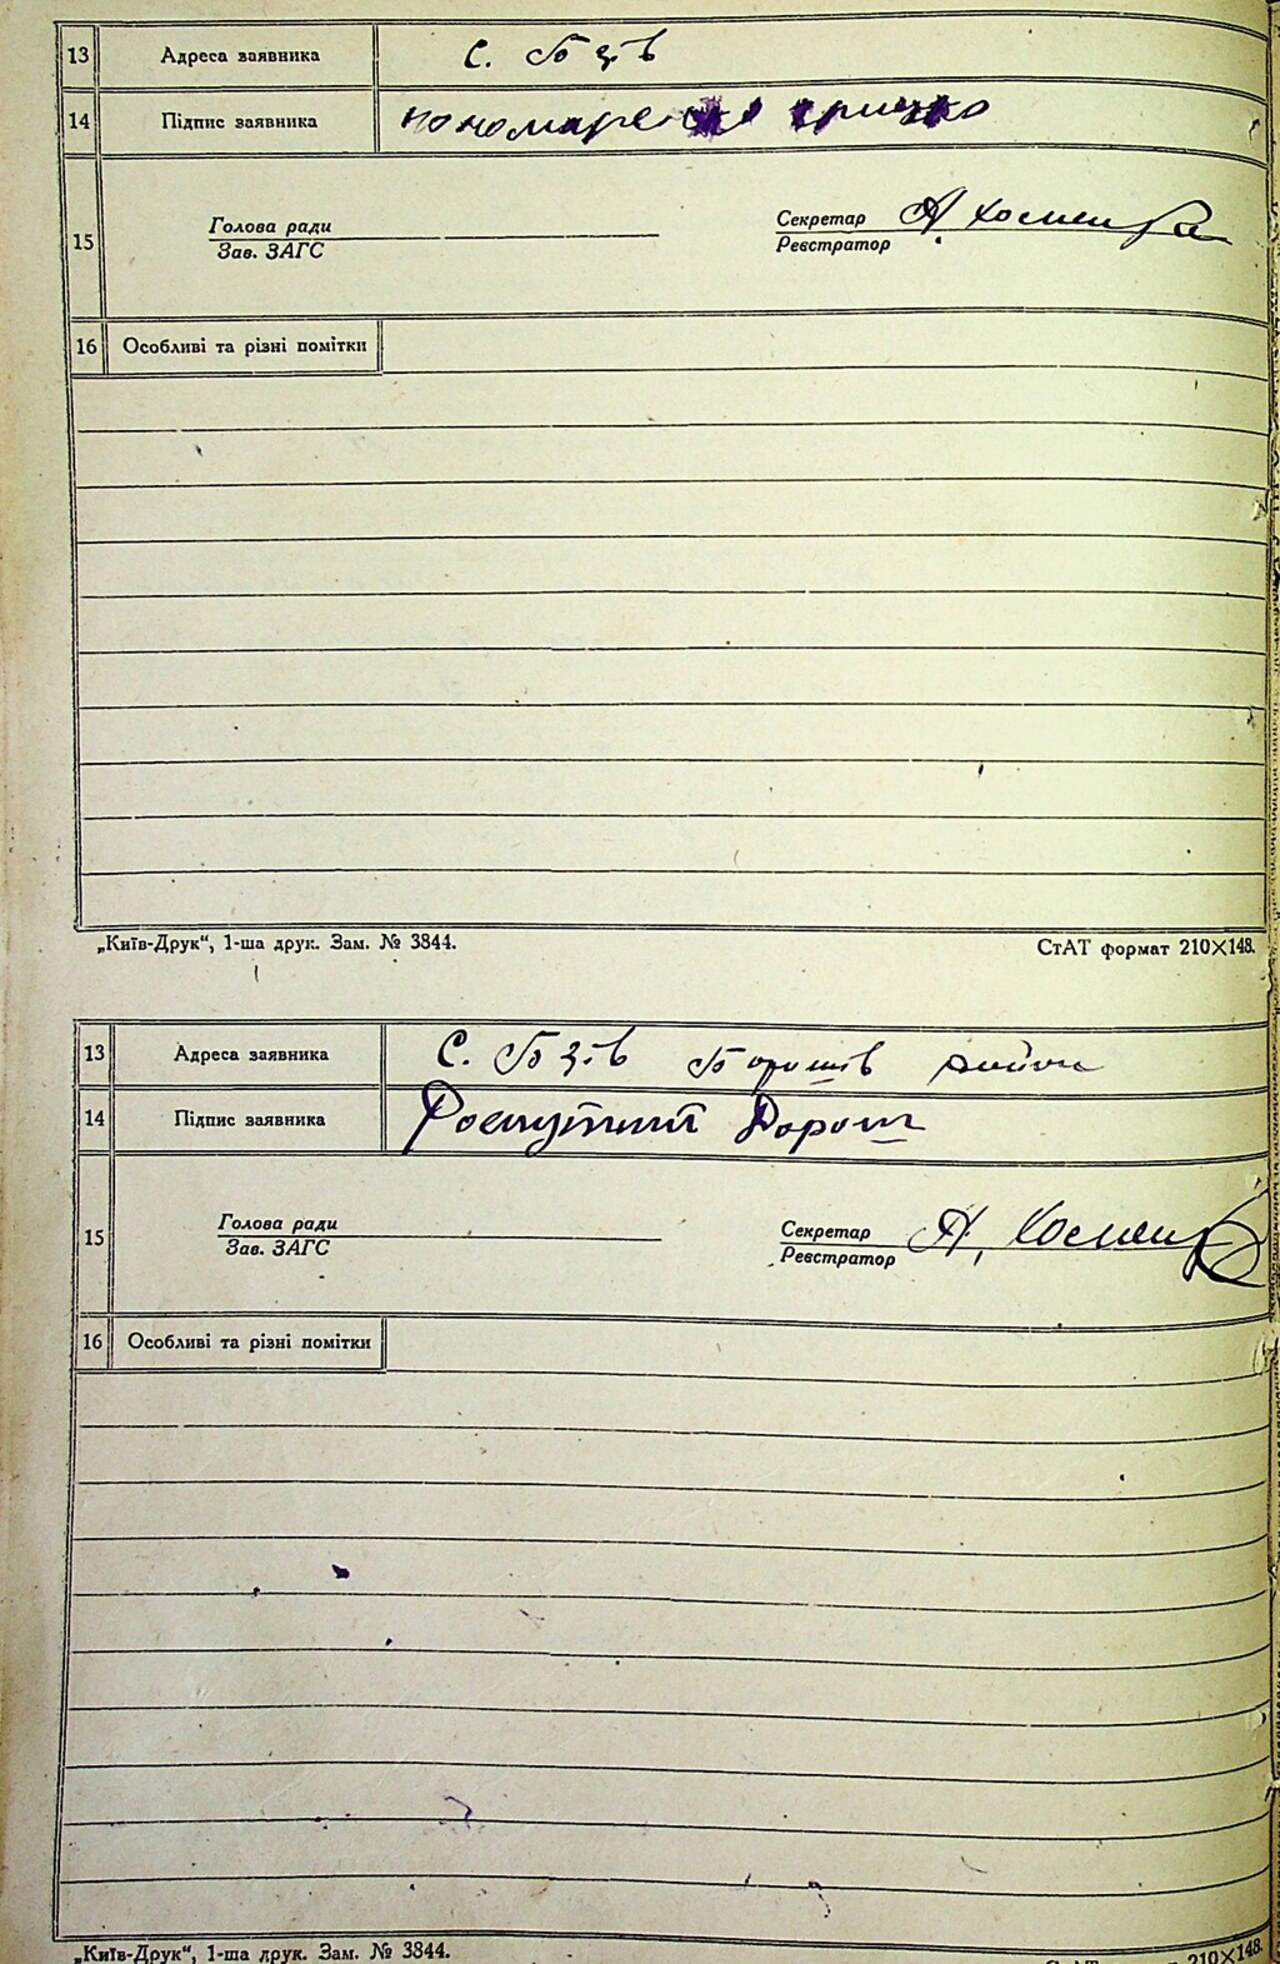 13 Адреса заявника с. Бзів
14 Підпис заявника пономаренко грицко
Голова ради Секретар А Хоменко
15
Зав. ЗАГС Реєстратор
16 Особливі та різні помітки
„Київ-Друк“, 1-ша друк. Зам. № 3844. СтАТ формат 210×148.
13 Адреса заявника С. Бзів Боришів район
14 Підпис заявника Роспутний Дорош
Голова ради Секретар А. Хоменко
15
Зав. ЗАГС Реєстратор
16 Особливі та різні помітки
„Київ-Друк“, 1-ша друк. Зам. № 3844. 210×148.